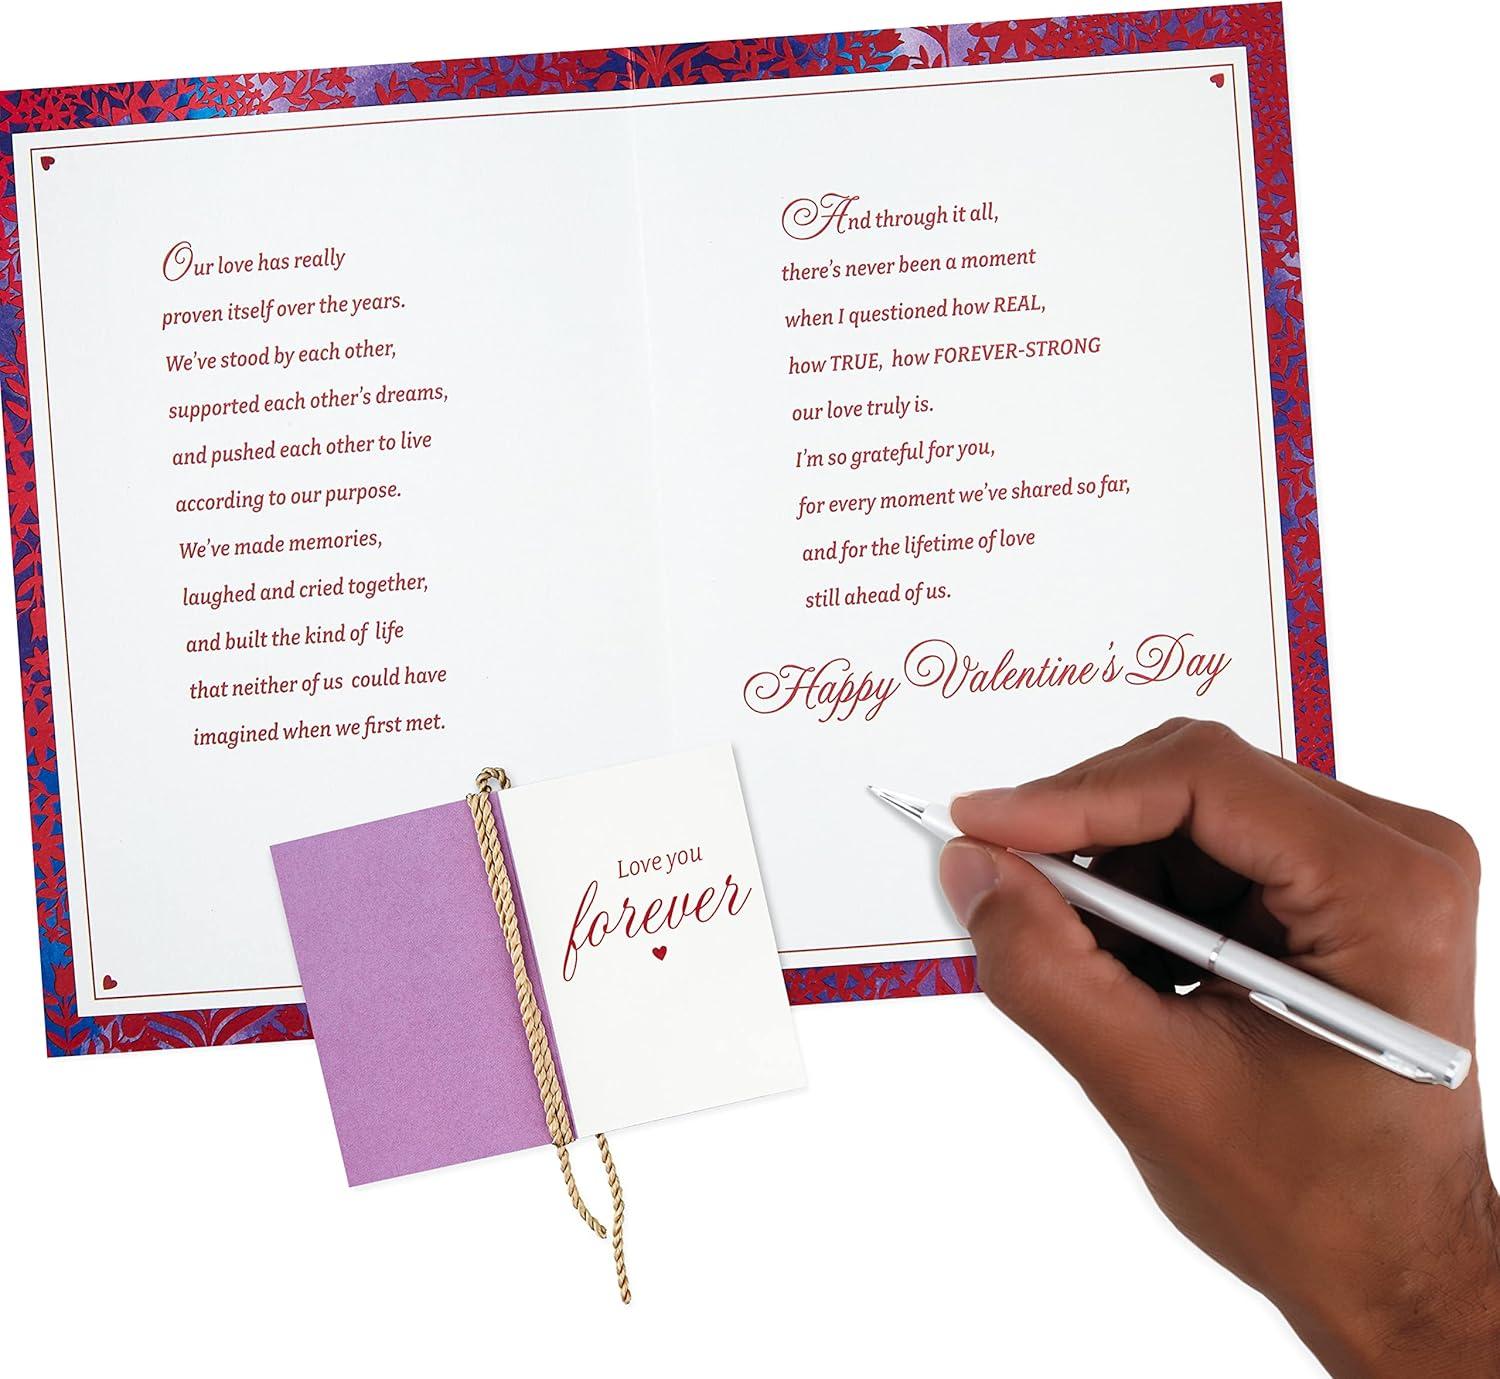 Our love has really
proven itself over the years.
We've stood by each other,
supported each other's dreams,
and pushed each other to live
according to our purpose.
We've made memories,
laughed and cried together,
and built the kind of life
that neither of us could have
imagined when we first met.
And through it all,
there's never been a moment
when I questioned how REAL,
how TRUE, how FOREVER-STRONG
our love truly is.
I'm so grateful for you,
for every moment we've shared so far,
and for the lifetime of love
still ahead of us.
Happy Valentine's Day
Love you
forever